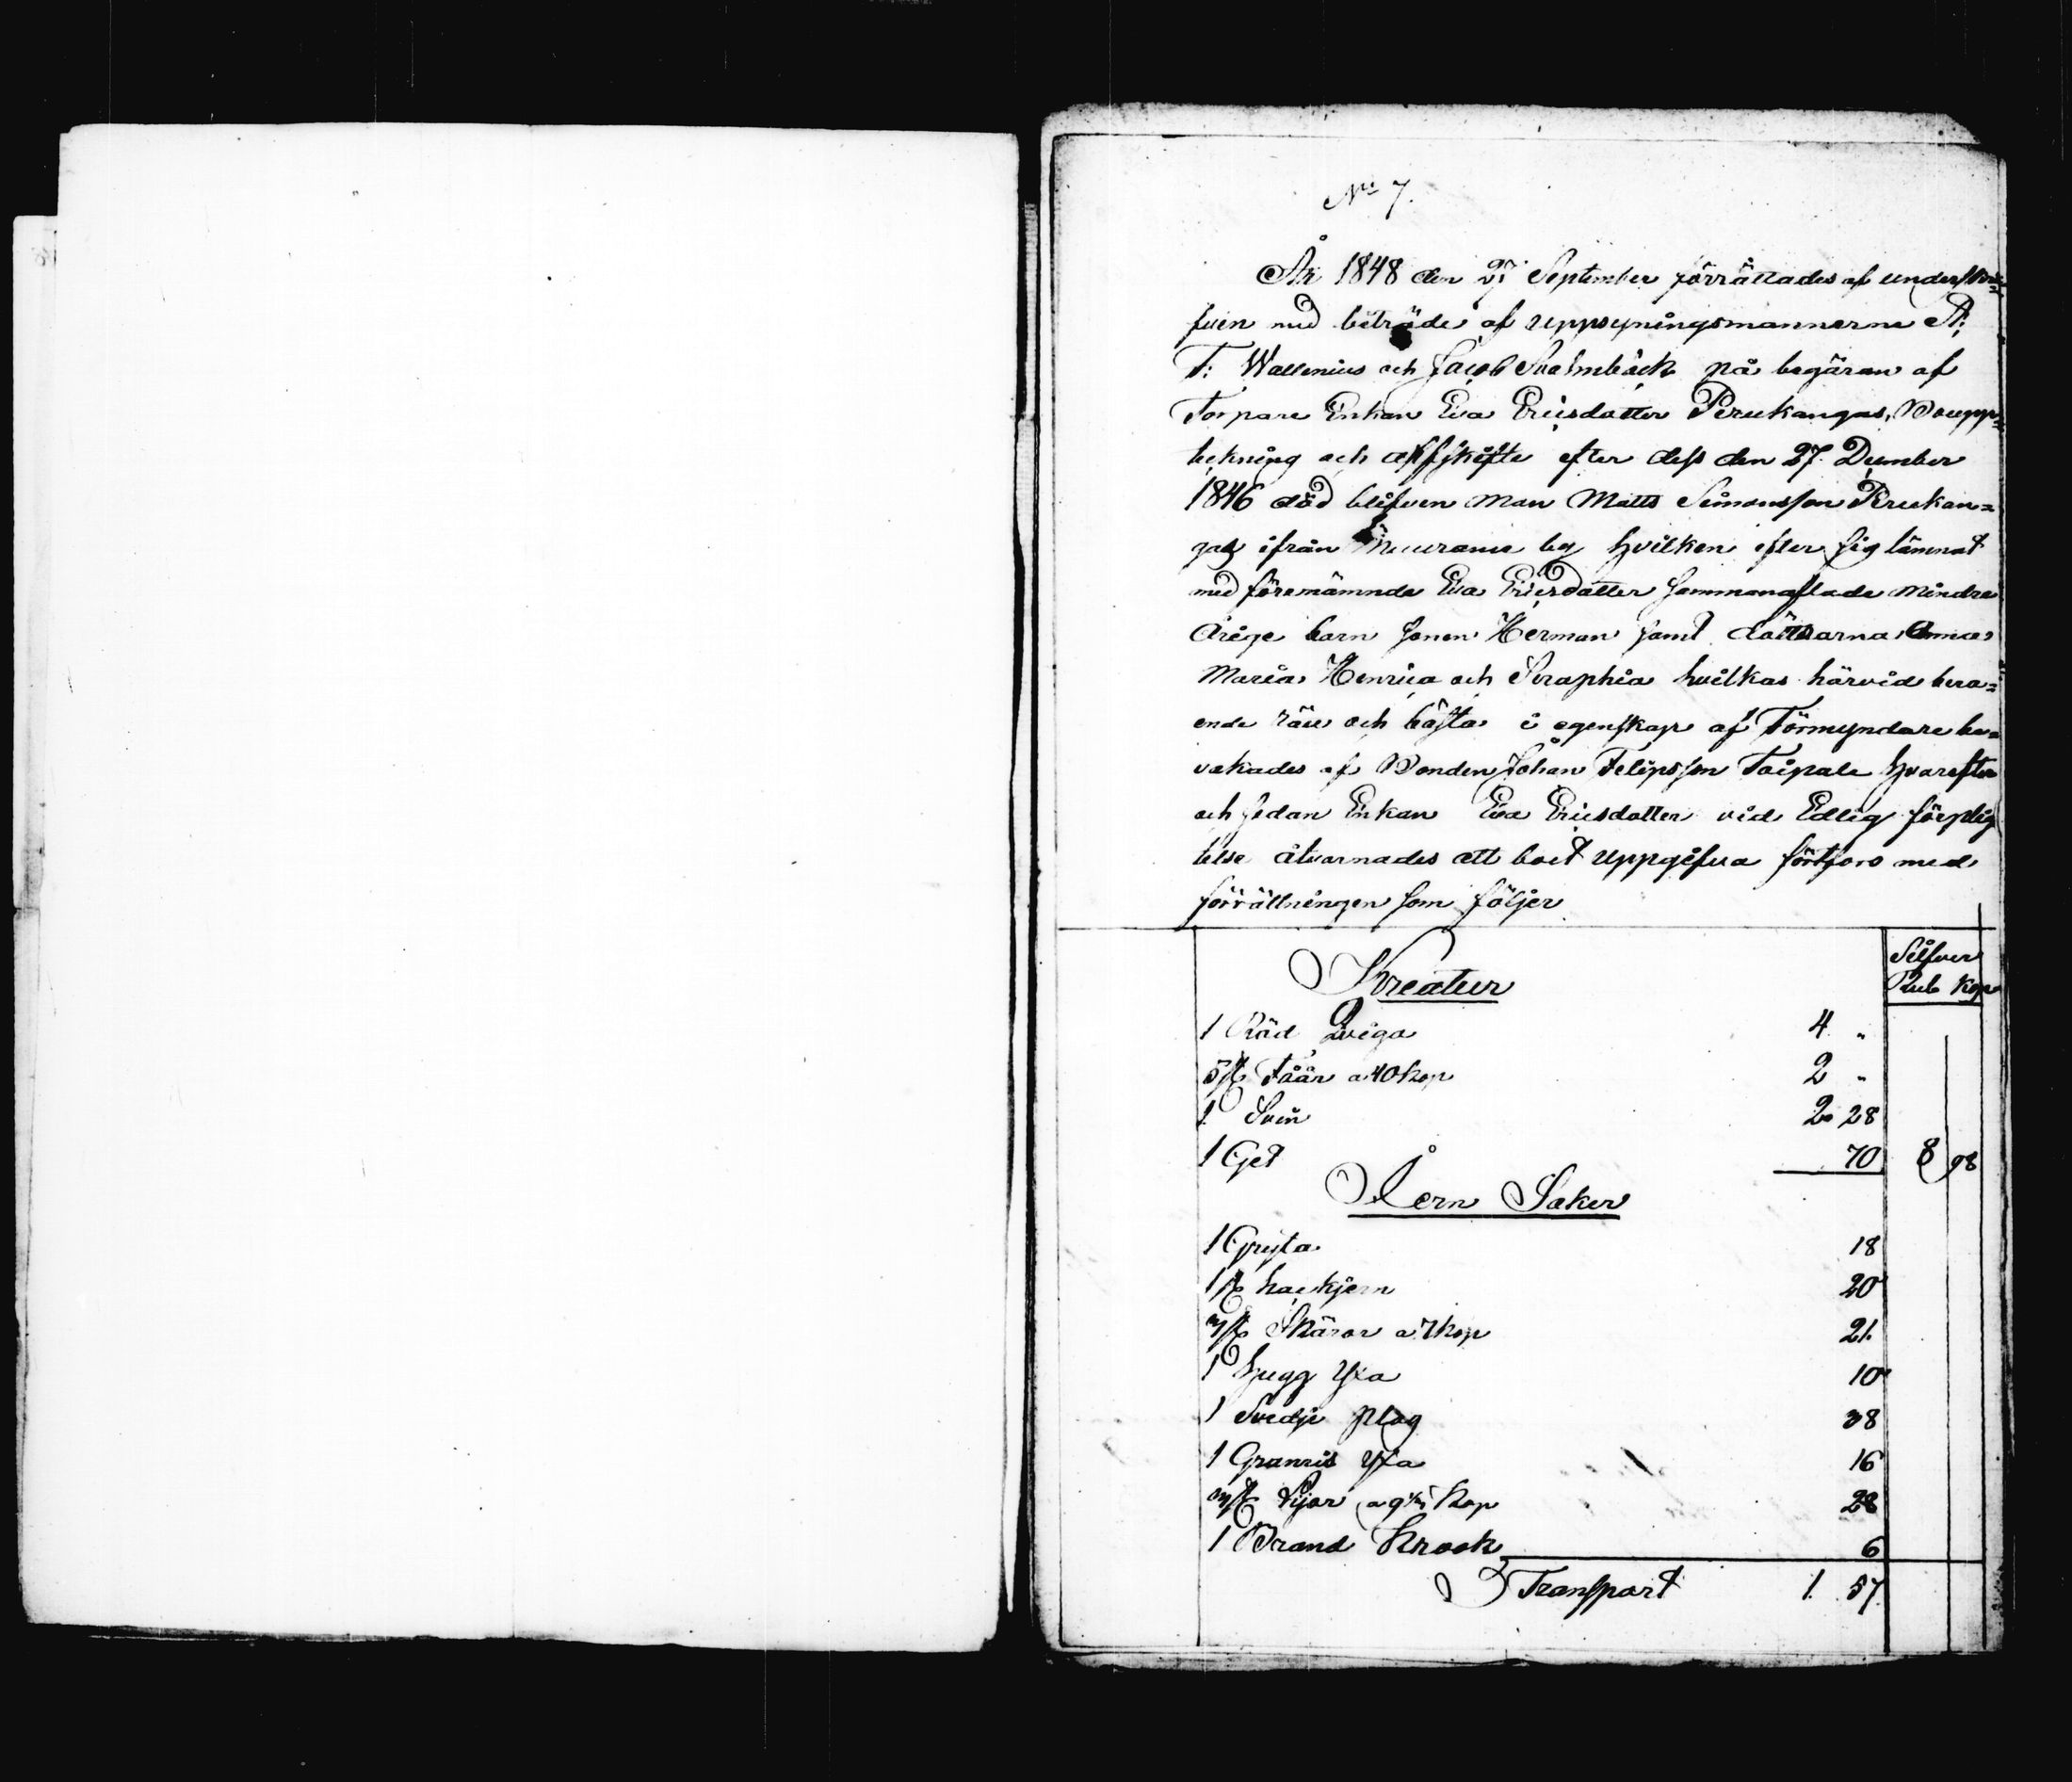 No 7.
År 1848 den 27 September förrättades af underskre=
fven med biträde af uppsyningsmannerne A:
F: Wallenius och Jacob Svahnbäck på begäran af
Torpare Enkan Eva Ericsdotter Perukangas, Boupp=
tekning och afskifte efter dess den 27 December
1846 död blifven man Matts Simonsson Perukan=
gas ifrån Muurame by hvilken efter sig lämnat
med förenämnde Eva Ericsdotter sammanaflade mindre
årige barn sonen Herman samt döttrarna Anna
Maria, Henrica och Seraphia hvilkas härvid bero=
ende rätt och bästa i egenskap af Förmyndare be=
vakades af Bonden Johan Felipsson Taipale hvarefter
och sedan Enkan Eva Ericsdotter vid Edlig förplig
telse åtvarnades att boet uppgifva fortfors med
förrättningen som följer
Silfver
Rub Kop
Kreatur
1 Röd Qviga 4 "
5 st Fåår a 40 kop 2 "
1 Svin 2 28
1 Get 70 8 98
Jern Saker
1 Gryta 18
1 st hackjern 20
3 st Skäror a 7 kop 21
1 hugg Yxa 10
1 Svedje Plog 38
1 Granris Yxa 16
3 st Lijor a 9 1/3 Kop 28
1 Brand Krook 6
Transport 1 57